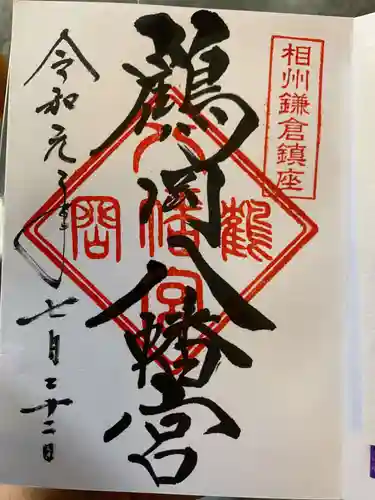 相州鎌倉鎮座
鶴岡八幡宮
八幡宮
鶴
岡
令和元年
七月二十二日